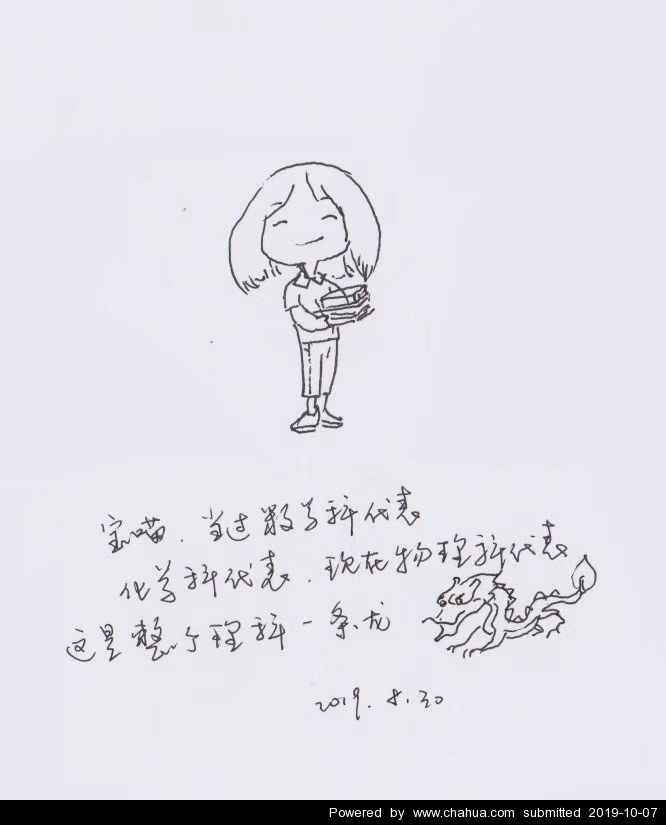 宝喵、当过数学科代表
化学科代表、现在物理科代表
这是整个理科一条龙
2019.8.30
Powered by www.chahua.com submitted 2019-10-07